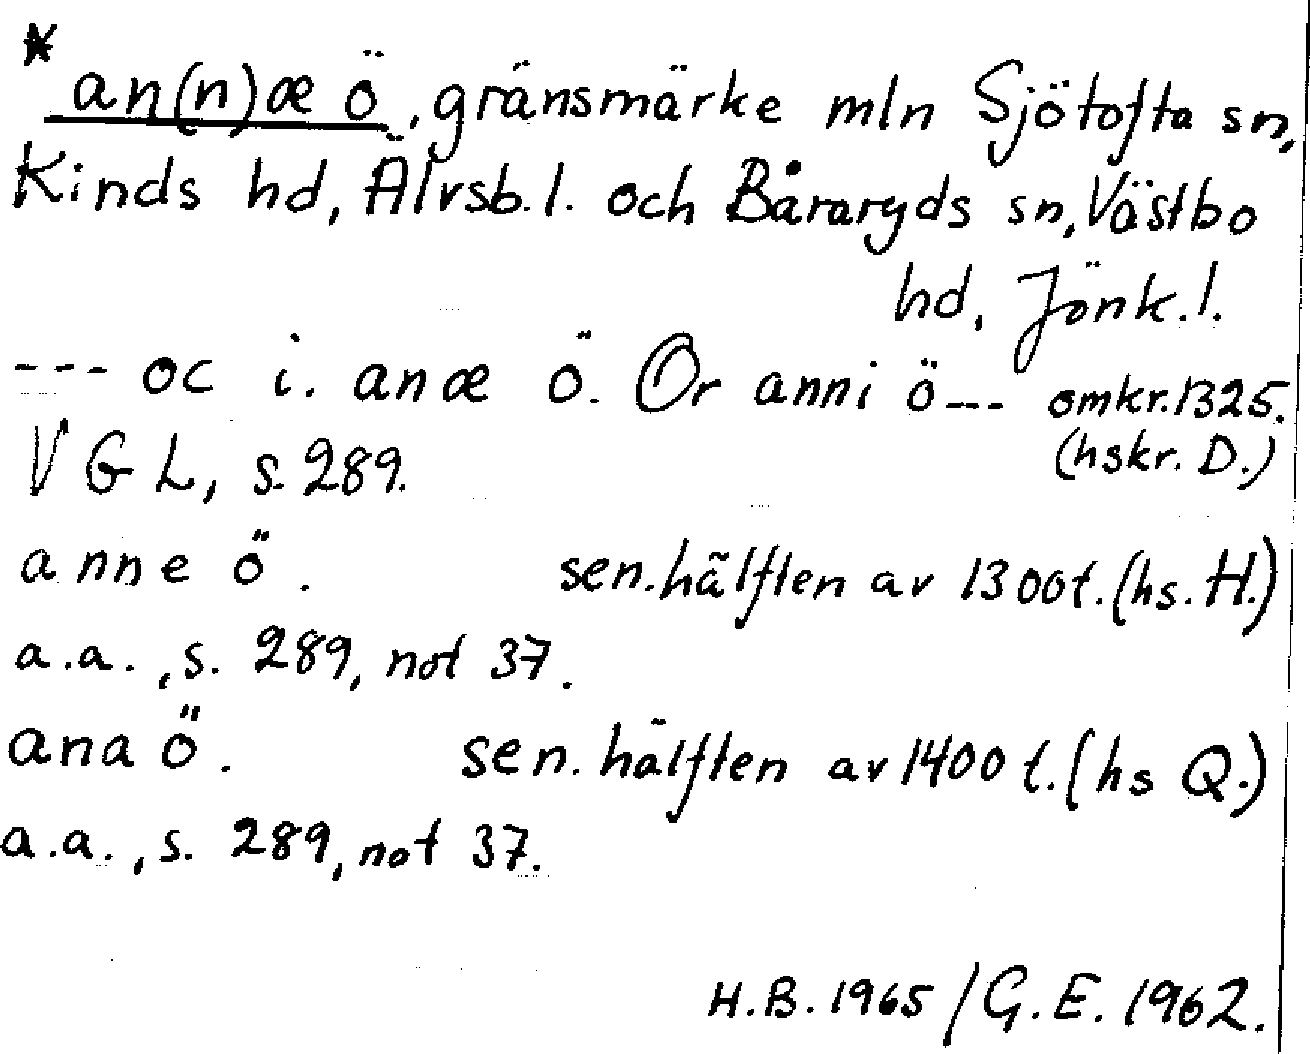 * an(n)æ ö, gränsmärke mln Sjötofta sn,
Kinds hd, Älvsb. l. och Båraryds sn, Västbo
hd, Jönk. l.
--- oc i. anæ ö. Or anni ö--- omkr. 1325.
(hskr. D.)
VGL, s. 289.
anne ö. sen. hälften av 1300 t. (hs. H.)
a.a., s. 289, not 37.
ana ö. sen. hälften av 1400 t. (hs Q.)
a.a., s. 289, not 37.
H.B. 1965 / G.E. 1962.